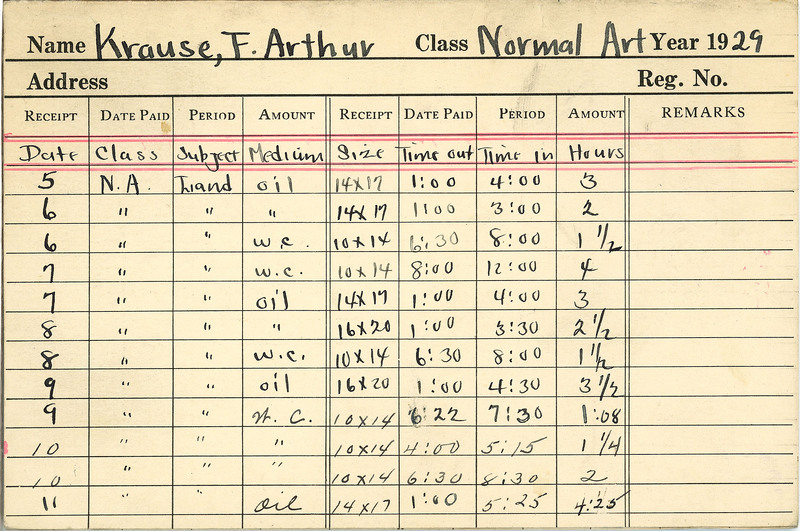 Name Krause, F. Arthur Class Normal Art Year 1929
Address Reg. No.
RECEIPT DATE PAID PERIOD AMOUNT RECEIPT DATE PAID PERIOD AMOUNT REMARKS
Date Class Subject Medium Size Time out Time in Hours
5 N.A. Land oil 14x17 1:00 4:00 3
6 " " " 14x17 1:00 3:00 2
6 " " w.c. 10x14 6:30 8:00 1 1/2
7 " " w.c. 10x14 8:00 12:00 4
7 " " oil 14x17 1:00 4:00 3
8 " " " 16x20 1:00 3:30 2 1/2
8 " " w.c. 10x14 6:30 8:00 1 1/2
9 " " oil 16x20 1:00 4:30 3 1/2
9 " " w.c. 10x14 6:22 7:30 1:08
10 " " " 10x14 4:00 5:15 1 1/4
10 " " " 10x14 6:30 8:30 2
11 " " oil 14x17 1:00 5:25 4:25